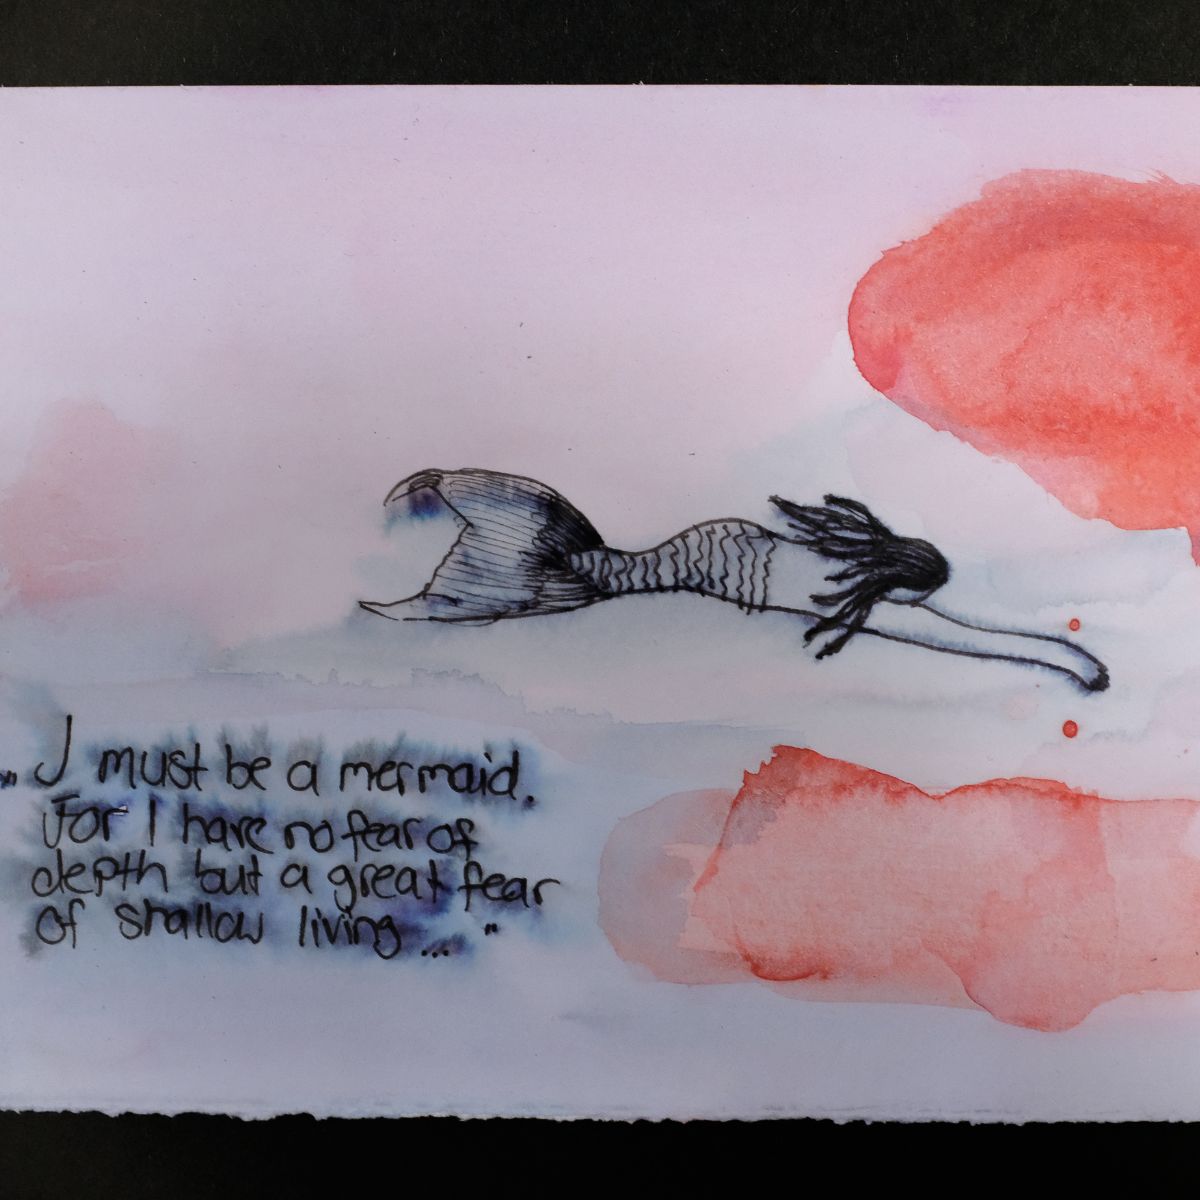 „I must be a mermaid.
For I have no fear of
depth but a great fear
of shallow living ..."